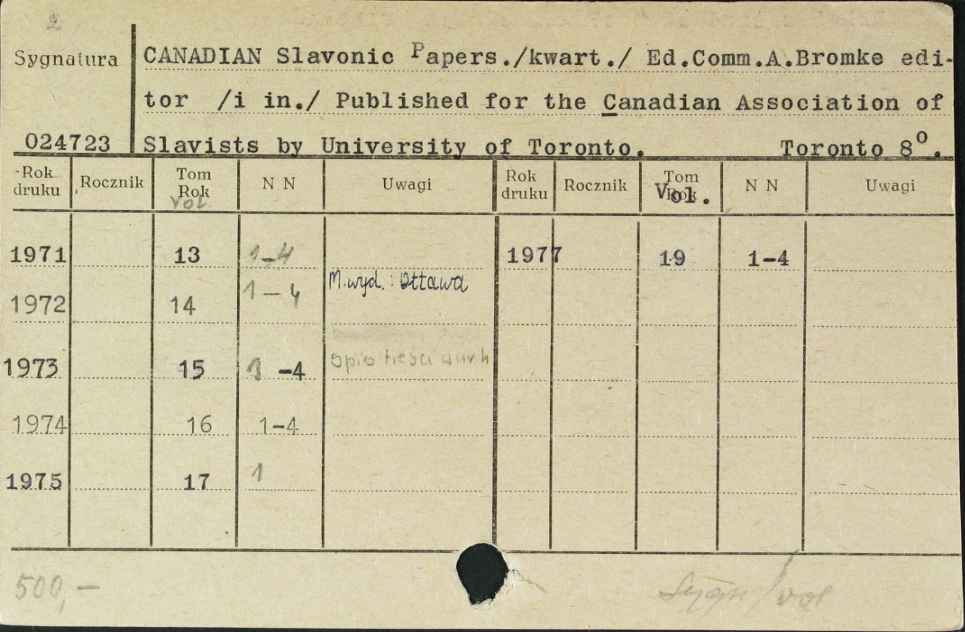 2
Sygnatura
CANADIAN Slavonic Papers./kwart./ Ed.Comm.A.Bromke edi-
tor /i in./ Published for the Canadian Association of
024723 Slavists by University of Toronto. Toronto 8°.
Rok druku Rocznik Tom Rok Vol N N Uwagi Rok druku Rocznik Tom Rok Vol. N N Uwagi
1971 13 1-4 1977 19 1-4
M.wyd.: Ottawa
1972 14 1-4
1973 15 1-4 spis treści
1974 16 1-4
1975 17 1
500,-
Sygn/vol